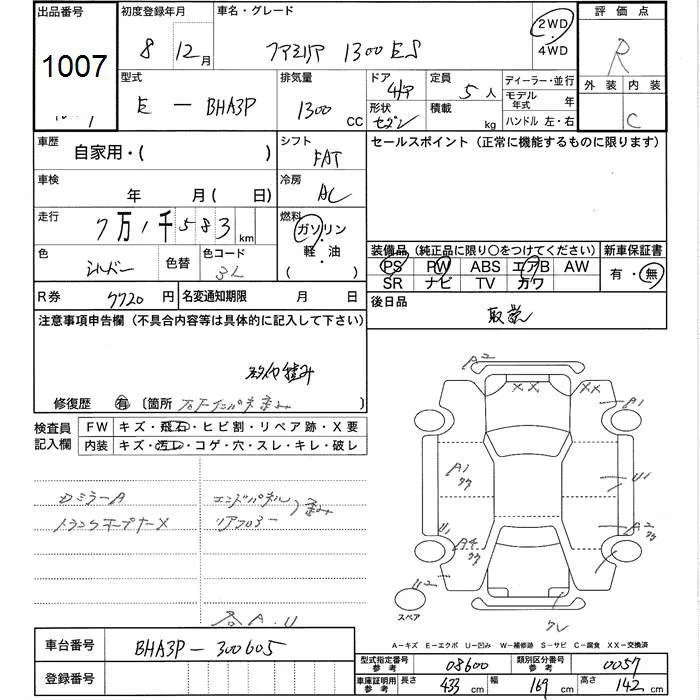 出品番号
1007
初度登録年月
8 12月
車名・グレード
ファミリア 1300 ES
2WD
・
4WD
評価点
R
外装 内装
C
型式
E — BHA3P
排気量
1300 CC
ドア
4ドア
形状
セダン
定員
5人
積載
kg
ディーラー・並行
モデル年式 年
ハンドル 左・右
車歴
自家用・( )
シフト
FAT
セールスポイント (正常に機能するものに限ります)
車検
年 月( 日)
冷房
AC
走行
7万1千583km
燃料
ガソリン
軽・油
( )
色
シルバー
色替
色コード
3L
装備品(純正品に限り○をつけてください)
新車保証書
PS PW ABS エアB AW
SR ナビ TV カワ
有・無
R券 7720円
名変通知期限 月 日
後日品
取説
注意事項申告欄(不具合内容等は具体的に記入して下さい)
修復歴 有 〔箇所 〕
検査員記入欄
FW キズ・飛石・ヒビ割・リペア跡・X要
内装 キズ・汚レ・コゲ・穴・スレ・キレ・破レ
ミラーA
エンドパネル
歪み
トランクオープナーX
リアフロアー
各A.U
A2
XX
XX
A1
A1
U1
U1
A2
A4
U2
スペア
A−キズ E−エクボ U−凹み W−補修跡 S−サビ C−腐食 XX−交換済
車台番号
BHA3P−300605
登録番号
型式指定番号参考 08600
類別区分番号参考 0057
車庫証明用参考 長さ 433cm 幅 169cm 高さ 142cm